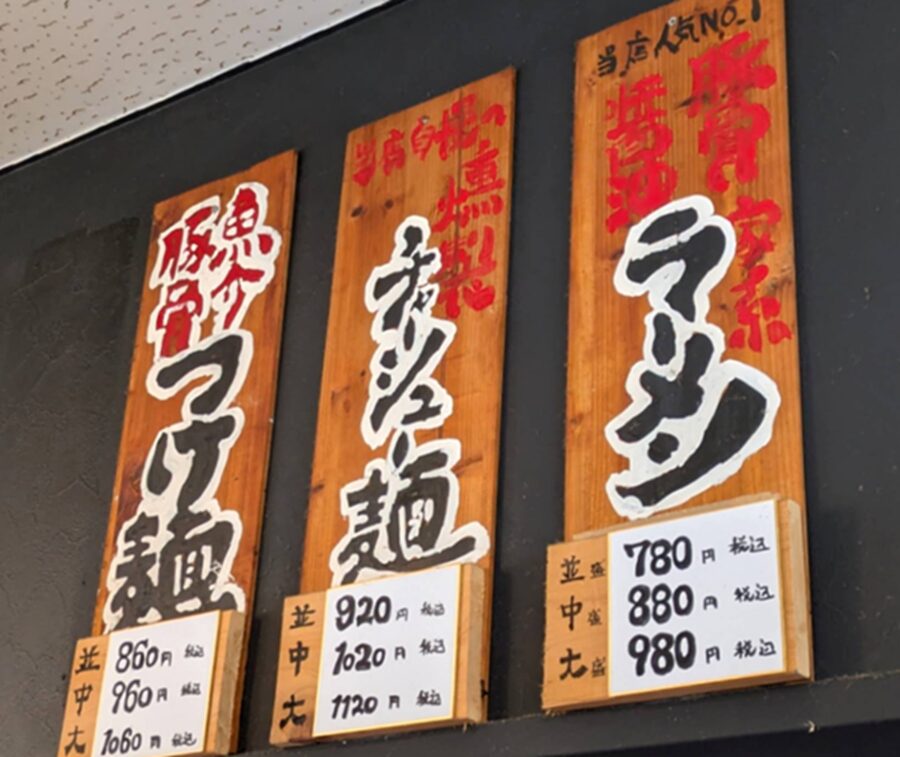 当店人気NO.1
豚骨
醤油
家系
ラーメン
並盛 780円 税込
中盛 880円 税込
大盛 980円 税込
当店自慢の
燻製
チャーシュー麺
並 920円 税込
中 1020円 税込
大 1120円 税込
魚介
豚骨
つけ麺
並 860円 税込
中 960円 税込
大 1060円 税込